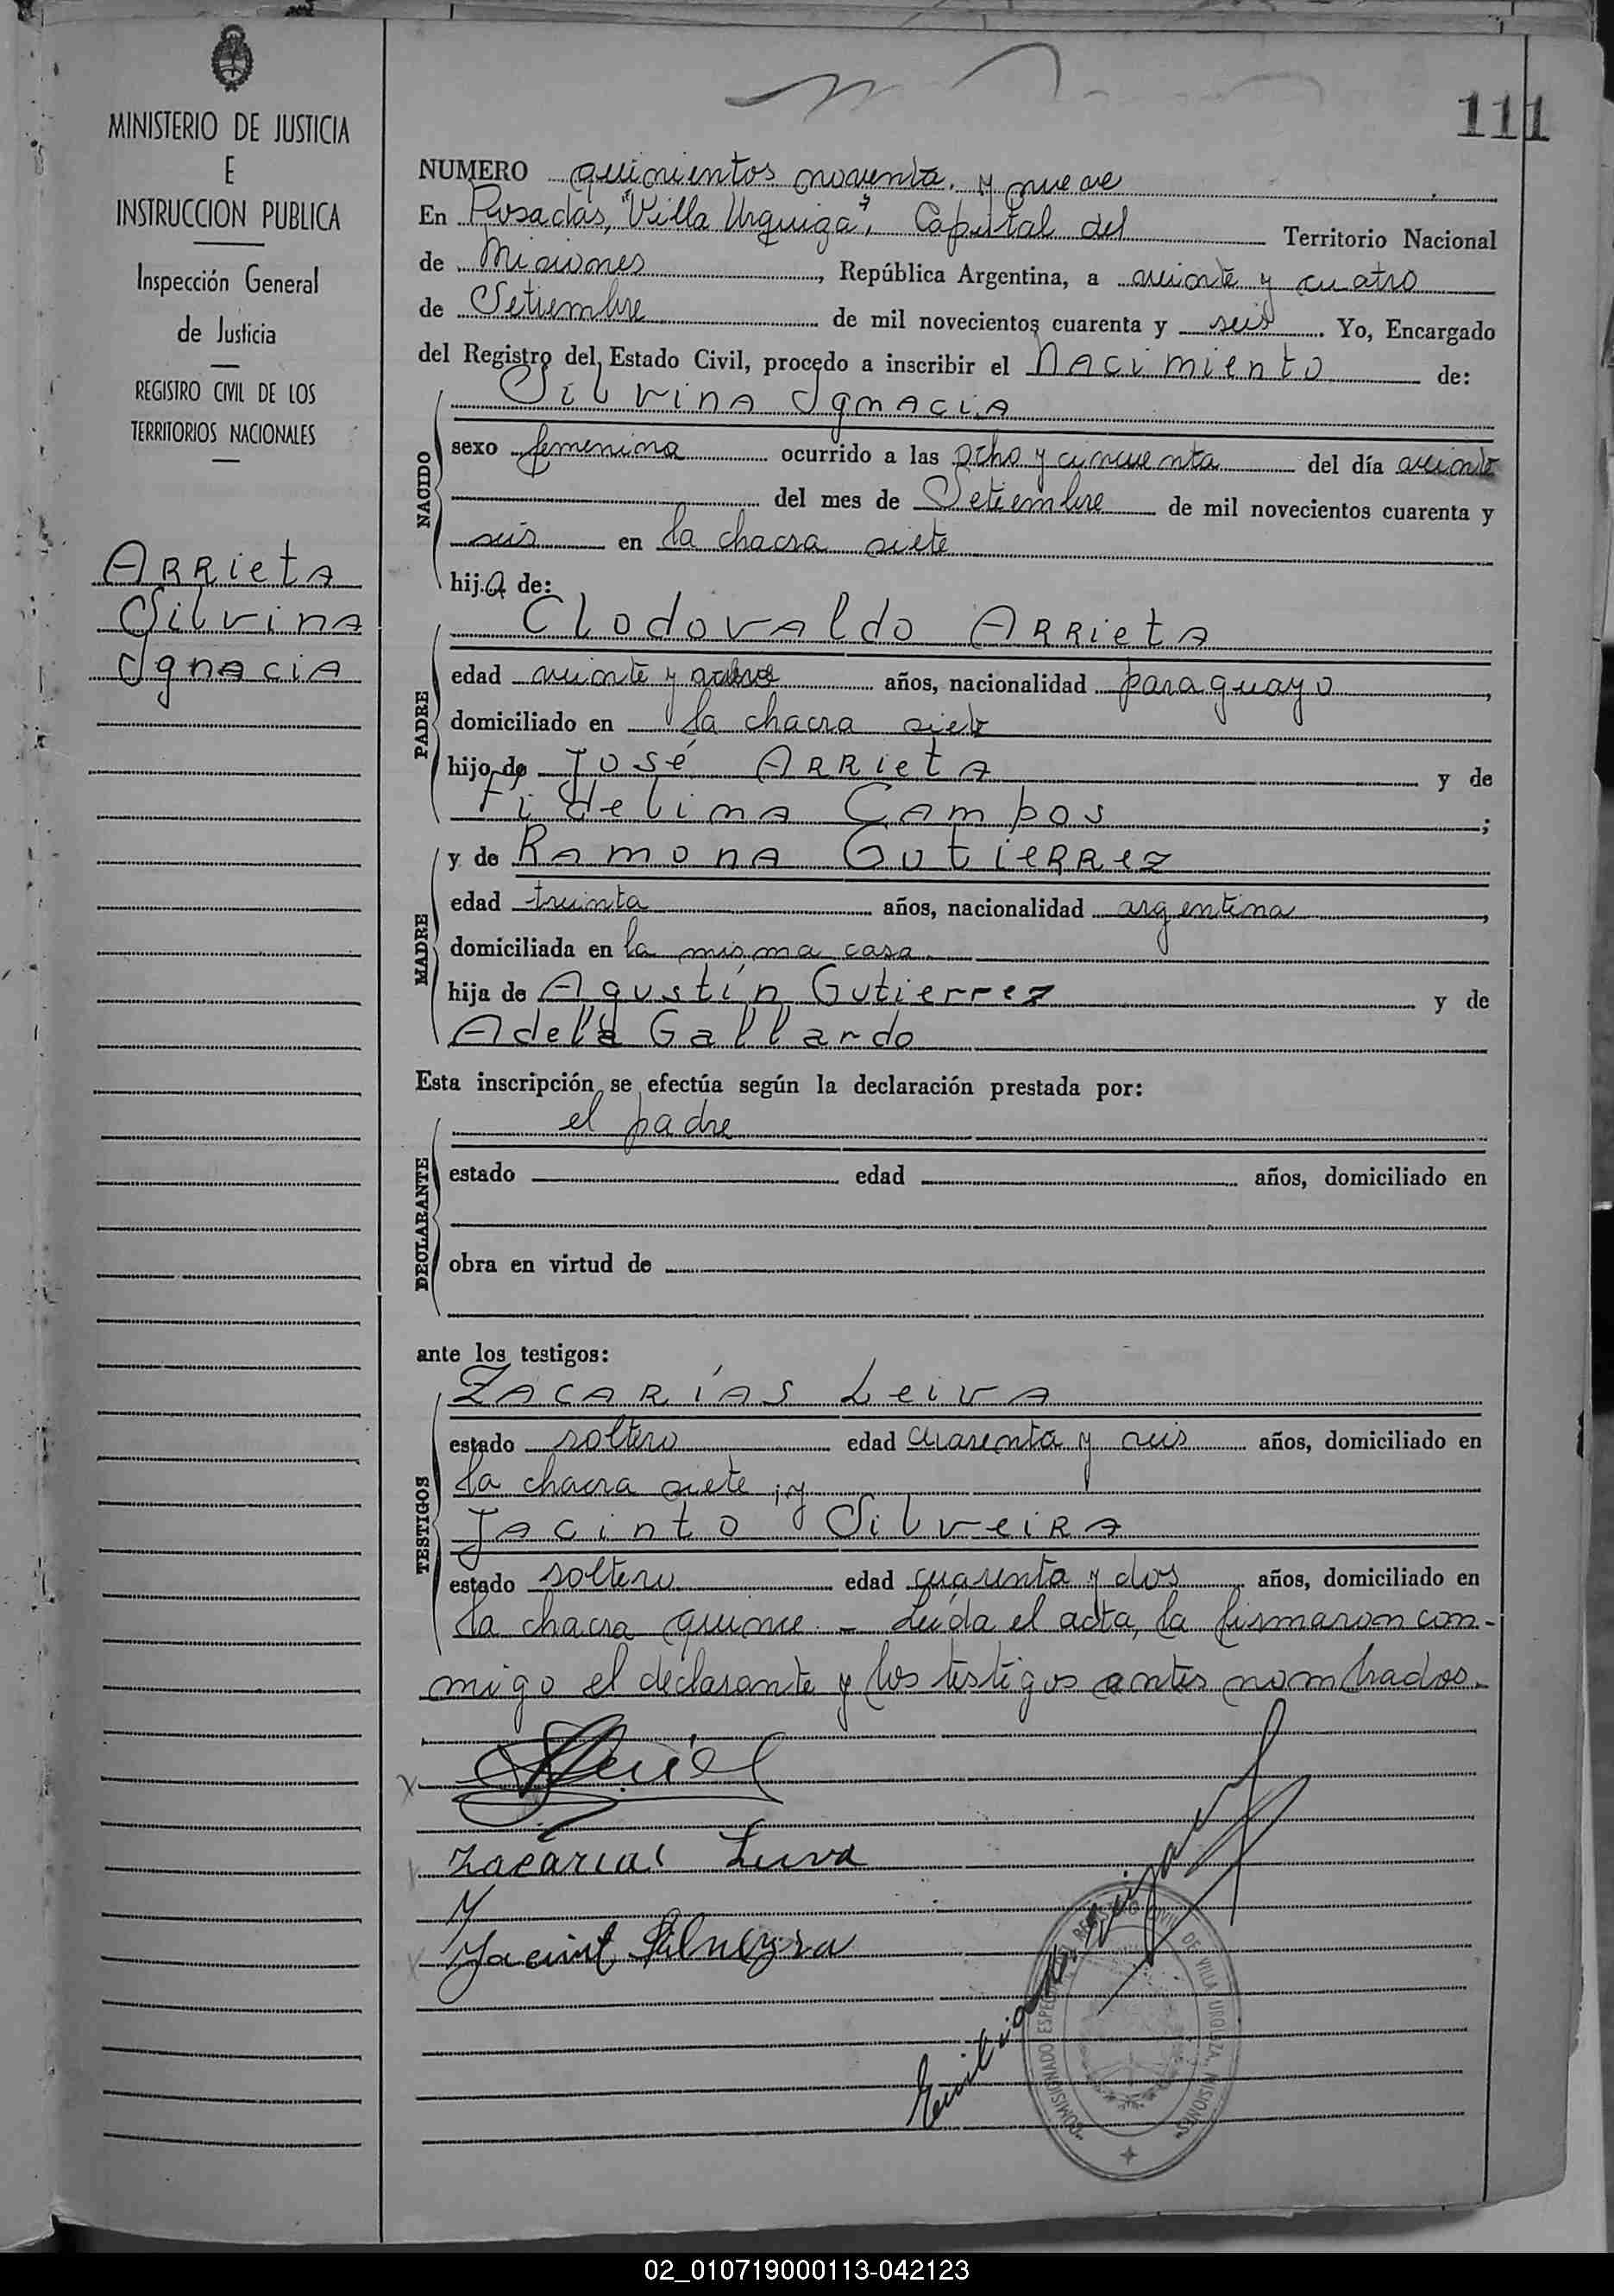 111
MINISTERIO DE JUSTICIA
E
INSTRUCCION PUBLICA
Inspección General
de Justicia
REGISTRO CIVIL DE LOS
TERRITORIOS NACIONALES
Arrieta
Silvina
Ignacia
NUMERO quinientos noventa y nueve
En Posadas, "Villa Urquiza", Capital del Territorio Nacional
de Misiones, República Argentina, a veinte y cuatro
de Setiembre de mil novecientos cuarenta y seis. Yo, Encargado
del Registro del Estado Civil, procedo a inscribir el Nacimiento de:
NACIDO
Silvina Ignacia
sexo femenina ocurrido a las ocho y cincuenta del día veinte
del mes de Setiembre de mil novecientos cuarenta y
seis en la chacra siete
hija de:
PADRE
Clodovaldo Arrieta
edad veinte y años, nacionalidad paraguayo,
domiciliado en la chacra siete
hijo de José Arrieta y de
Fidelina Campos;
MADRE
y de Ramona Gutierrez
edad treinta años, nacionalidad argentina,
domiciliada en la misma casa.
hija de Agustín Gutierrez y de
Adela Gallardo
Esta inscripción se efectúa según la declaración prestada por:
DECLARANTE
el padre
estado edad años, domiciliado en
obra en virtud de
ante los testigos:
TESTIGOS
Zacarías Leiva
estado soltero edad cuarenta y seis años, domiciliado en
la chacra siete; y
Jacinto Silveira
estado soltero edad cuarenta y dos años, domiciliado en
la chacra quince. - Leída el acta, la firmaron con-
migo el declarante y los testigos antes nombrados.
Zacarias Leiva
Jacint Silveyra
COMISIONADO ESPECIAL REGISTRO CIVIL DE VILLA URQUIZA, MISIONES
02_010719000113-042123